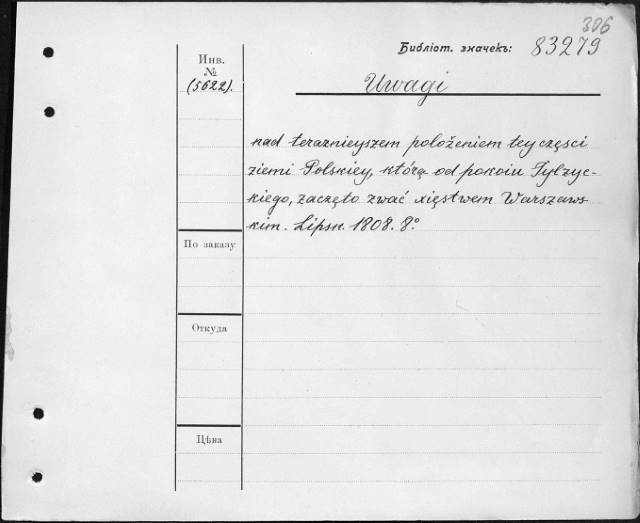 306
Библіот. значекъ: 83279
Инв.
№
(5622).
Uwagi
nad teraznieyszem położeniem tey części
ziemi Polskiey, którą od pokoiu Tylzyc-
kiego, zaczęto zwać xięstwem Warszaws-
kim. Lipsk. 1808. 8º
По заказу
Откуда
Цѣна